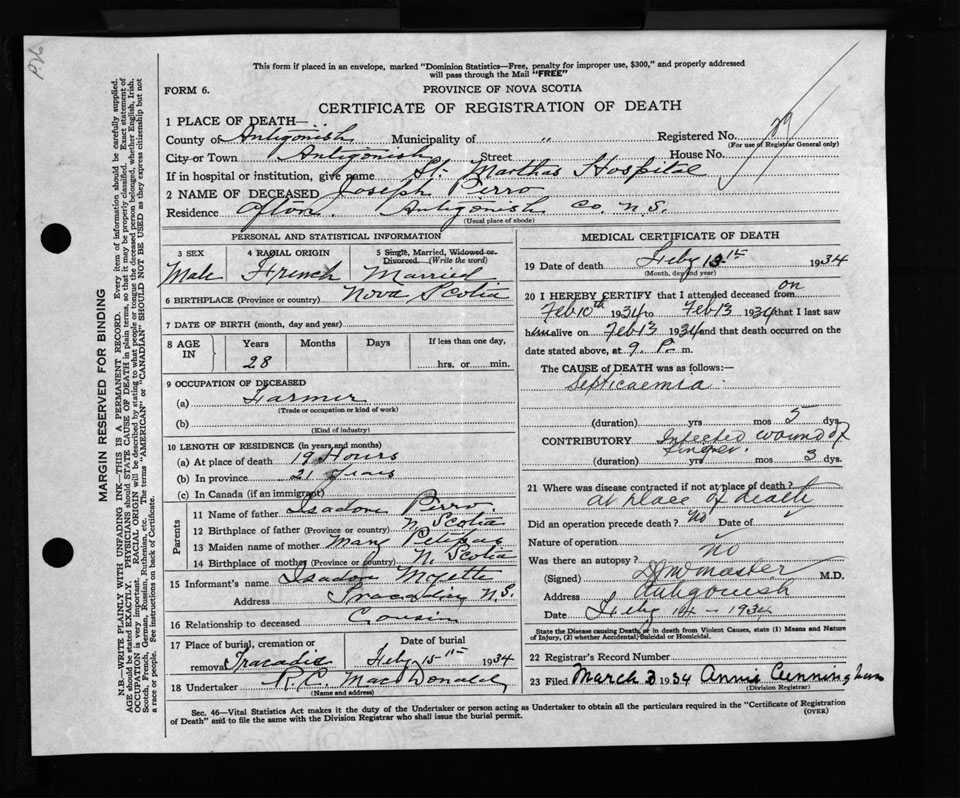 This form if placed in an envelope, marked "Dominion Statistics—Free, penalty for improper use, $300," and properly addressed
will pass through the Mail "FREE"
FORM 6.
PROVINCE OF NOVA SCOTIA
CERTIFICATE OF REGISTRATION OF DEATH
1 PLACE OF DEATH—
County of Antigonish Municipality of " Registered No. 29
(For use of Registrar General only)
City or Town Antigonish Street House No.
If in hospital or institution, give name St. Marthas Hospital
2 NAME OF DECEASED Joseph Perro
Residence Afton. Antigonish Co. N.S.
(Usual place of abode)
PERSONAL AND STATISTICAL INFORMATION
3 SEX 4 RACIAL ORIGIN 5 Single, Married, Widowed or Divorced. (Write the word)
Male French Married
6 BIRTHPLACE (Province or country) Nova Scotia
7 DATE OF BIRTH (month, day and year)
8 AGE IN Years Months Days If less than one day,
28 hrs. or min.
9 OCCUPATION OF DECEASED
(a) Farmer
(Trade or occupation or kind of work)
(b)
(Kind of industry)
10 LENGTH OF RESIDENCE (in years and months)
(a) At place of death 19 Hours
(b) In province 21 years
(c) In Canada (if an immigrant)
Parents
11 Name of father Isadore Perro
12 Birthplace of father (Province or country) N. Scotia
13 Maiden name of mother Mary Petipas
14 Birthplace of mother (Province or country) N. Scotia
15 Informant's name Isadore
Address N.S.
16 Relationship to deceased Cousin
17 Place of burial, cremation or removal Tracadie
Date of burial Feby 15th 1934
18 Undertaker R.C. MacDonald
(Name and address)
MEDICAL CERTIFICATE OF DEATH
19 Date of death Feby 13th 1934
(Month, day and year)
20 I HEREBY CERTIFY that I attended deceased from on
Feb 10th 1934 to Feb 13 1934 that I last saw
him alive on Feb 13 1934 and that death occurred on the
date stated above, at 9. P. m.
The CAUSE of DEATH was as follows:—
Septicaemia
(duration) yrs mos 5 dys.
CONTRIBUTORY Infected wound of
finger.
(duration) yrs mos 3 dys.
21 Where was disease contracted if not at place of death?
at place of death
Did an operation precede death? no Date of
Nature of operation
Was there an autopsy? no
(Signed) M.D.
Address Antigonish
Date Feby 14 - 1934
State the Disease causing Death, or in death from Violent Causes, state (1) Means and Nature
of Injury, (2) whether Accidental, Suicidal or Homicidal.
22 Registrar's Record Number
23 Filed March 3 1934 Annie Cunningham
(Division Registrar)
Sec. 46—Vital Statistics Act makes it the duty of the Undertaker or person acting as Undertaker to obtain all the particulars required in the "Certificate of Registration
of Death" and to file the same with the Division Registrar who shall issue the burial permit.
(OVER)
MARGIN RESERVED FOR BINDING
N.B.—WRITE PLAINLY WITH UNFADING INK—THIS IS A PERMANENT RECORD. Every item of information should be carefully supplied.
AGE should be stated EXACTLY. PHYSICIANS should STATE CAUSE OF DEATH in plain terms, so that it may be properly classified. Exact statement of
OCCUPATION is very important. RACIAL ORIGIN will be described by stating to what people or tongue the deceased person belonged, whether English, Irish,
Scotch, French, German, Russian, Ruthenian, etc. The terms "AMERICAN" or "CANADIAN" SHOULD NOT BE USED as they express citizenship but not
a race or people. See instructions on back of Certificate.